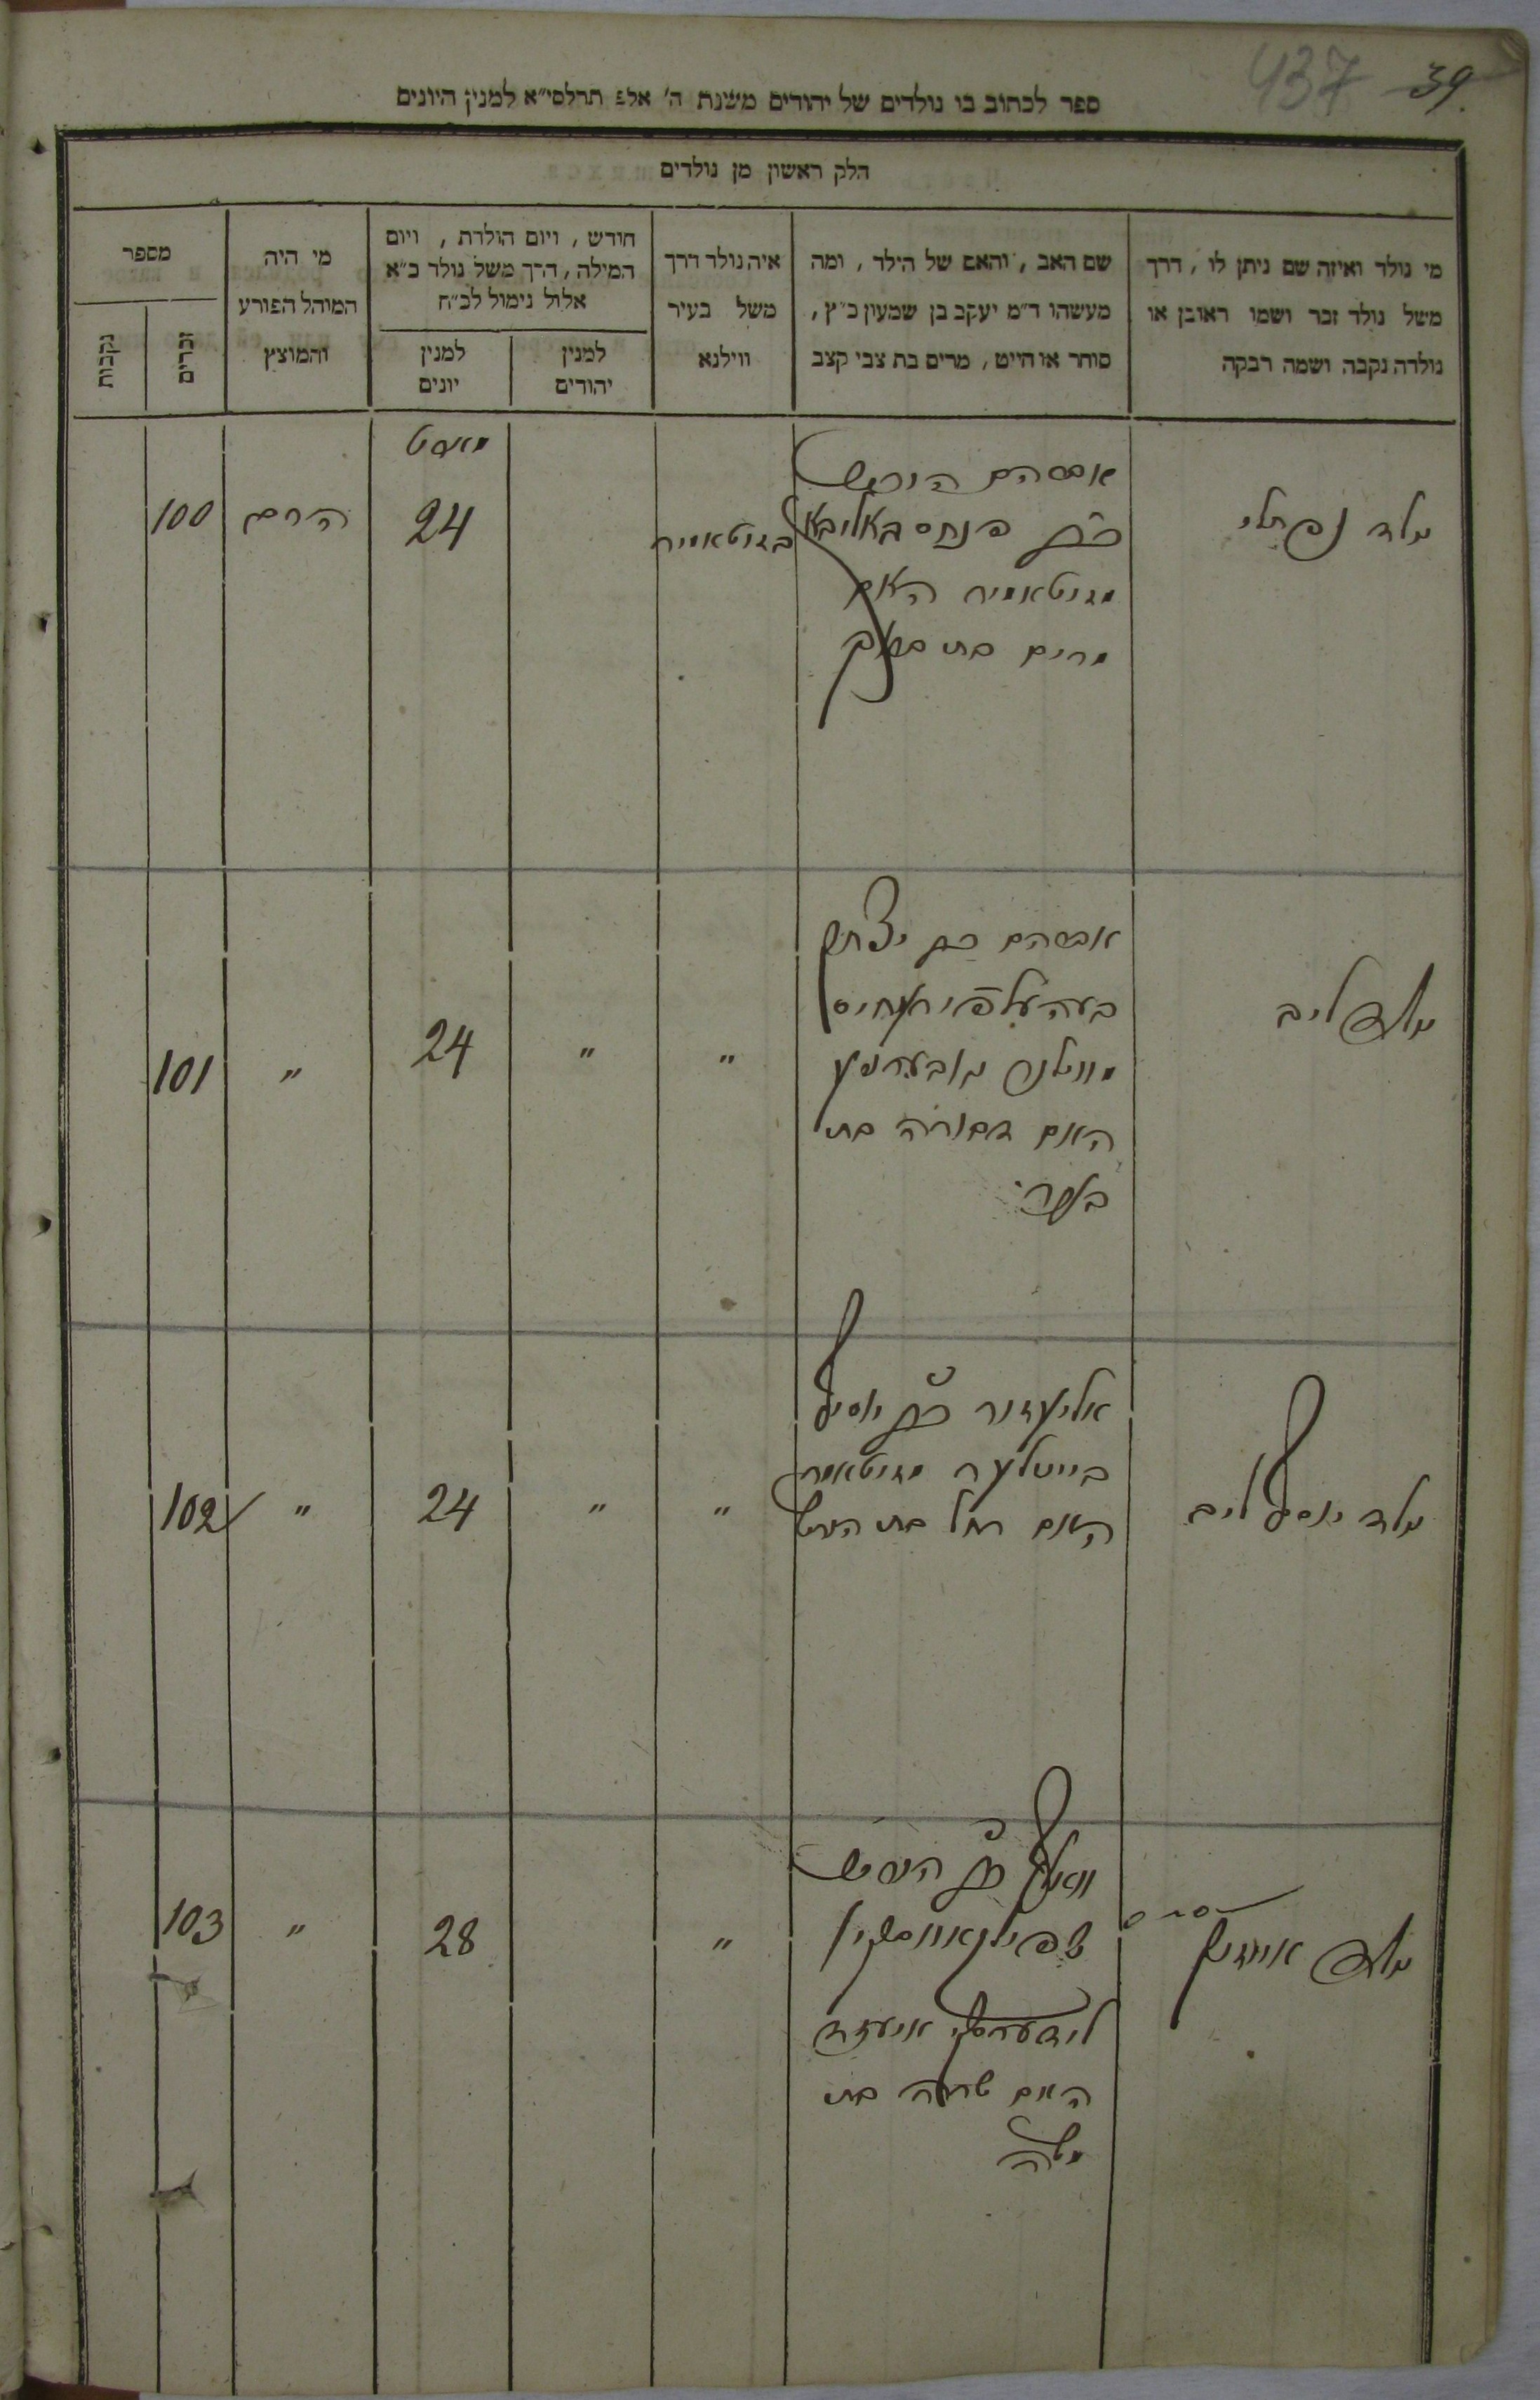 437 39
ספר לכתוב בו נולדים של יהודים משנת ה' אלפ תרלסי״א למנין היונים
חלק ראשון מן נולדים
מי נולד ואיזה שם ניתן לו, דרך
משל נולד זכר ושמו ראובן או
נולדה נקבה ושמה רבקה
שם האב, והאם של הילד, ומה
מעשהו ד״מ יעקב בן שמעון כ״ץ,
סוחר או חייט, מרים בת צבי קצב
איה נולד דרך
משל בעיר
ווילנא
חודש, ויום הולדת, ויום
המילה, ה״ך משל נולד כ״א
אלול נימול לכ״ח
למנין
יהודים
למנין
יונים
מי היה
המוהל הפורע
והמוצץ
מספר
זכרים
נקבות
ילד נפתלי
אברהם הירש
ב״ר פנחס
האם
מרים בת
בזיטאמיר
24
הרב
100
ילד ליב
אברהם בר יצחק
האם דבורה בת
"
"
24
"
101
ילד יוסף ליב
אליעזר ב״ר יוסף
מזיטאמיר
האם רחל בת הירש
"
"
24
"
102
ילד אייזיק
וואלף ב״ר הירש
האם שרה בת
משה
"
28
"
103